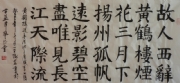 故人西辭
黃鶴樓煙
花三月下
揚州孤帆
遠影碧空
盡唯見長
江天際流